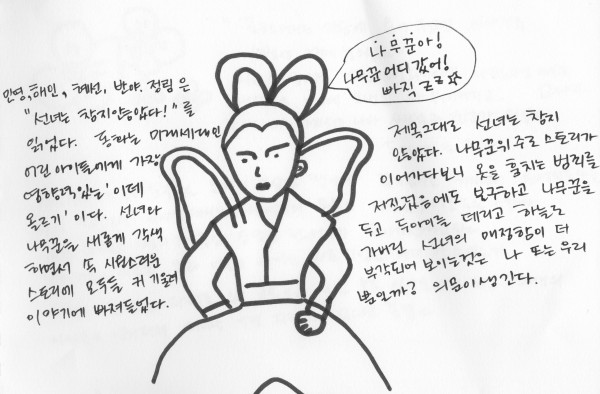 나무꾼아!
나무꾼 어디 갔어!
빠직 ㄹㄹ☆
민영, 해인, 혜선, 반야, 정림 은
"선녀는 참지않았다!" 를
읽었다. 동화는 미래세대인
어린 아이들에게 가장
영향력있는' 이데
올르기' 이다. 선녀와
나무꾼을 새롭게 각색
하면서 쏙 시원스러운
스토리에 모두들 귀 기울여
이야기에 빠져들었다.
제목그대로 선녀는 참지
않았다. 나무꾼위주로 스토리가
이어가다보니 옷을 훔치는 범죄를
저질렀음에도 불구하고 나무꾼을
두고 두아이를 데리고 하늘로
가버린 선녀의 매정함이 더
부각되어 보이는것은 나 또는 우리
뿐일까? 의문이 생긴다.